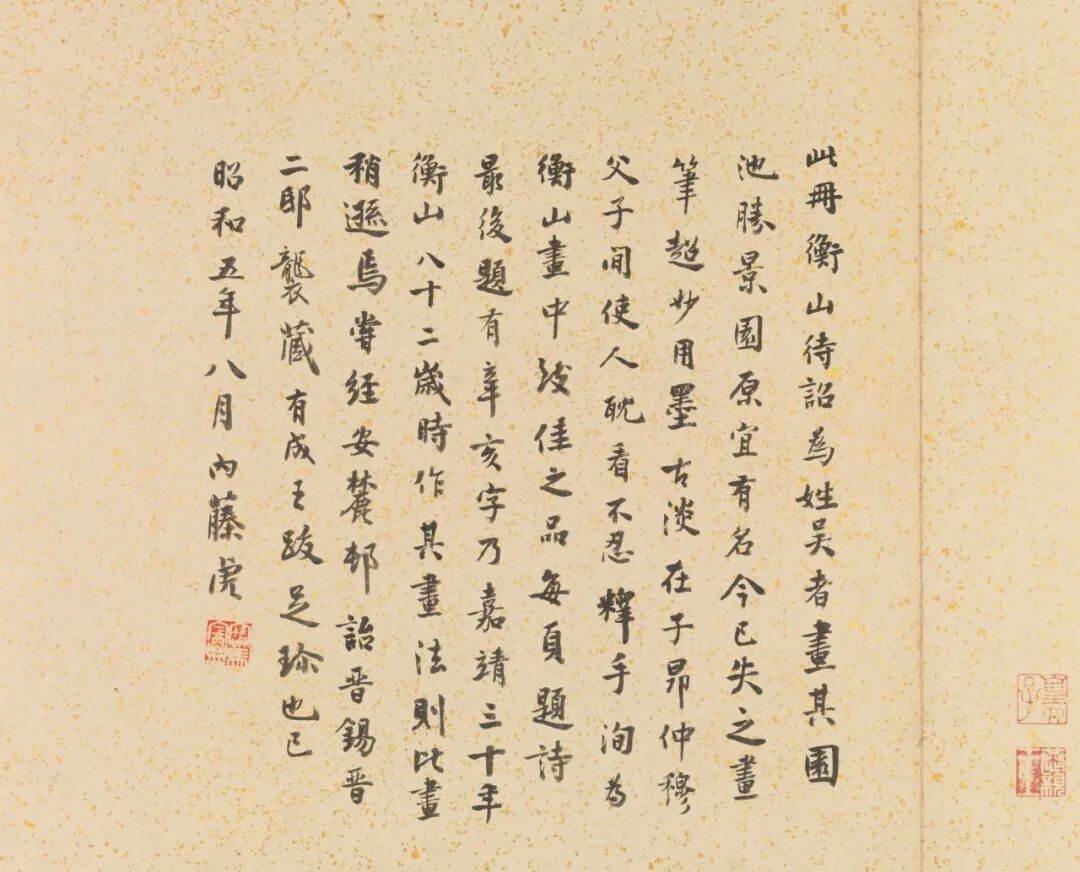 此冊衡山待詔為姓吴者畫其園
池勝景園原宜有名今已失之畫
筆超妙用墨古淡在子昂仲穆
父子间使人耽看不忍釋手洵为
衡山畫中致佳之品每頁題詩
最後題有辛亥字乃嘉靖三十年
衡山八十二歲時作其畫法則此畫
稍遜焉嘗經安麓邨詒晋錫晋
二邸襲藏有成王跋足珎也已
昭和五年八月内藤虎